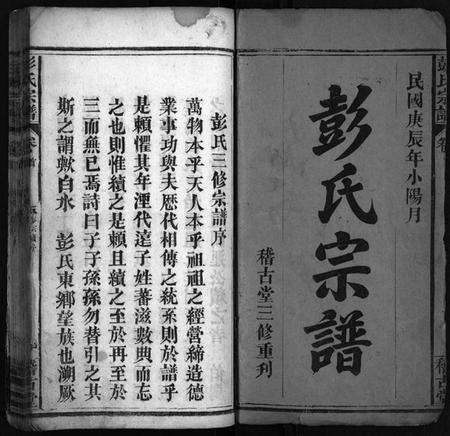 彭氏宗譜
卷
稽古堂
民國庚辰年小陽月
彭氏宗譜
稽古堂三修重刊
彭氏三修宗譜序
萬物本乎天人本乎祖祖之經營締造德
業事功與夫歷代相傳之統系則於譜乎
是賴懼其年湮代遠子姓蕃滋數典而忘
之也則惟續之是賴且續之至於再至於
三而無已焉詩曰子子孫孫勿替引之其
斯之謂歟白水 彭氏東鄉望族也溯厥
彭氏宗譜
卷首
稽古堂